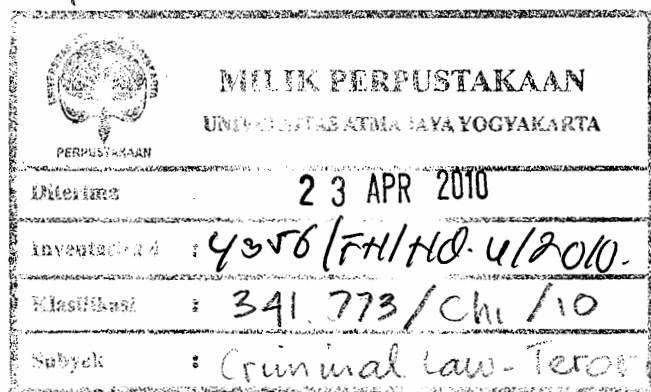 MILIK PERPUSTAKAAN
UNIVERSITAS ATMA JAYA YOGYAKARTA
PERPUSTAKAAN
Diterima : 23 APR 2010
Inventarisasi : 4356/FH/HD. 4/2010.
Klasifikasi : 341.773/Chi/10
Subyek : Criminal Law - Teror